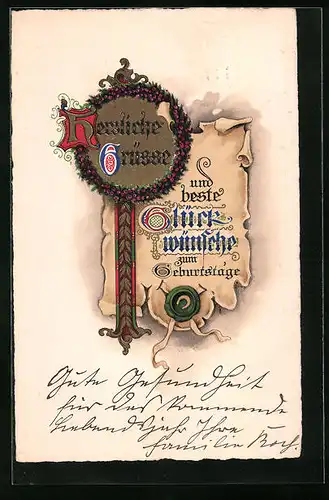 Herzliche
Grüsse
und
beste
Glück
wünsche
zum
Geburtstage
Gute Gesundheit
für das kommende
Lebensjahr Ihre
Familie Koch.